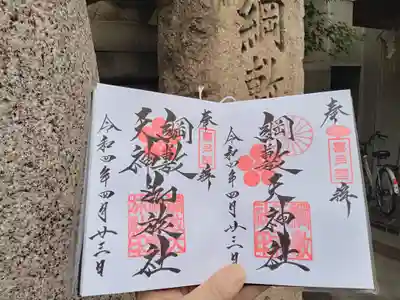 綱敷
奉拝
喜多埜
綱敷天神社
令和四年四月廿三日
奉拝
綱敷天神御旅社
令和四年四月廿三日